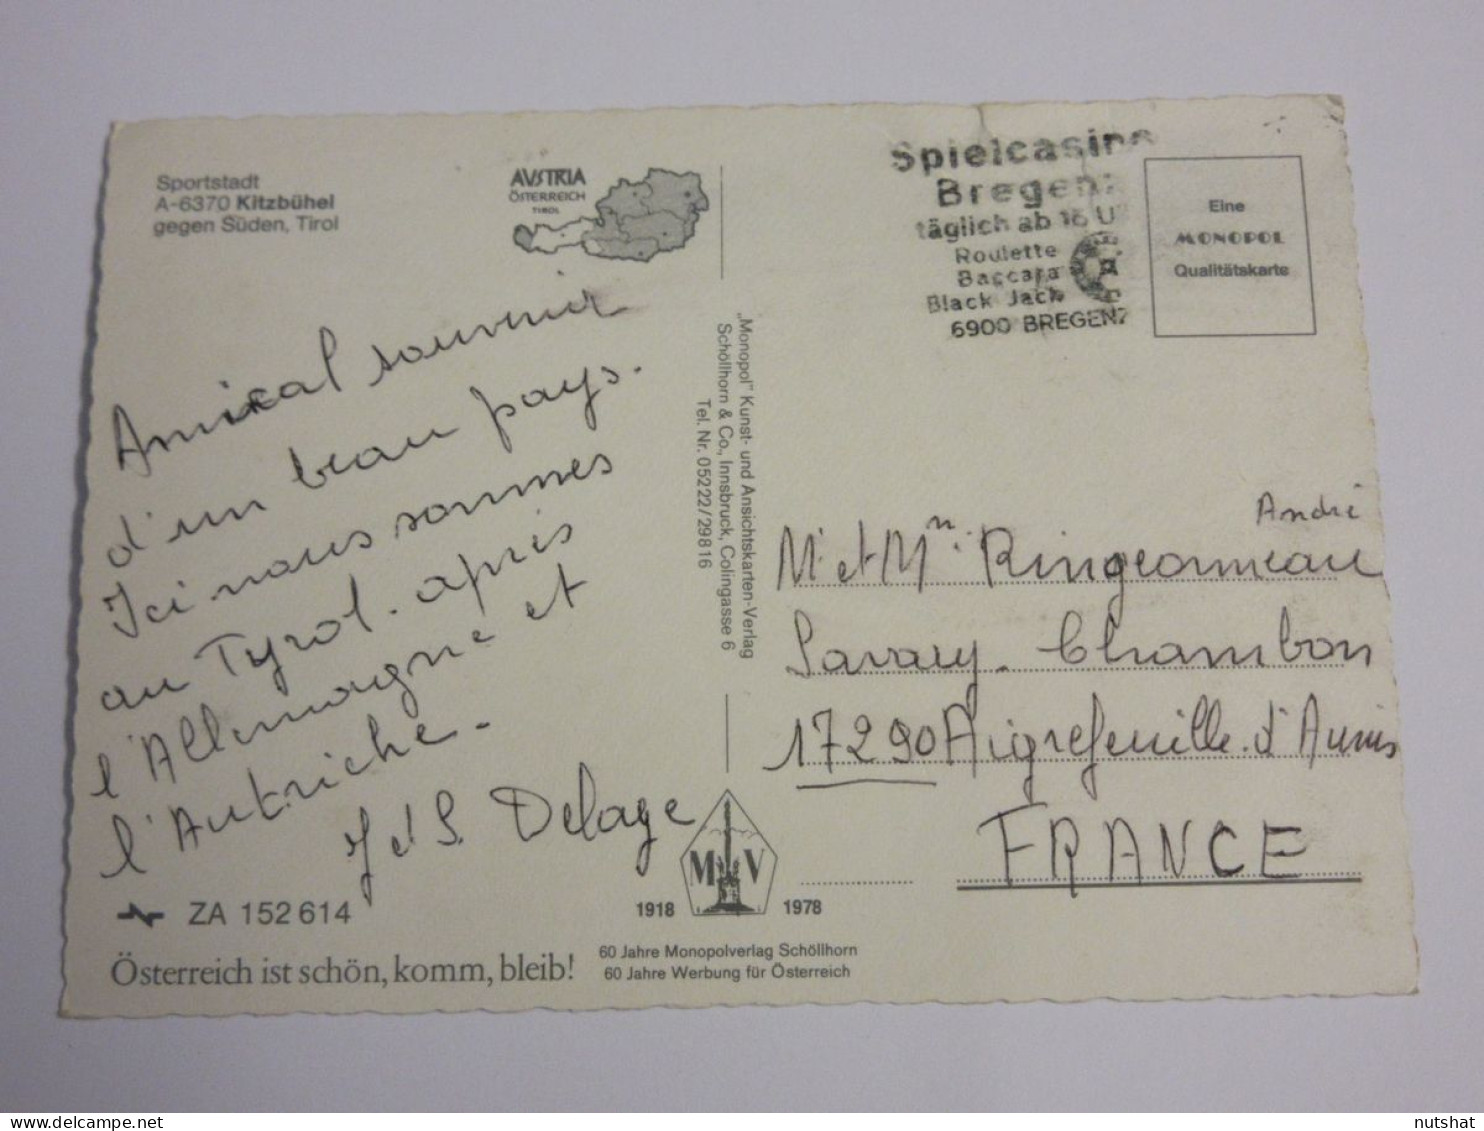 Sportstadt
A-6370 Kitzbühel
gegen Süden, Tirol
AVSTRIA
ÖSTERREICH
TIROL
Amical souvenir
d'un beau pays.
Ici nous sommes
au Tyrol. après
l'Allemagne et
l'Autriche.
J et S. Delage
ZA 152 614
Österreich ist schön, komm, bleib!
„Monopol" Kunst- und Ansichtskarten-Verlag
Schöllhorn & Co., Innsbruck, Colingasse 6
Tel. Nr. 05222/29816
M V
1918 1978
60 Jahre Monopolverlag Schöllhorn
60 Jahre Werbung für Österreich
Spielcasino
Bregenz
täglich ab 16 U
Roulette
Baccara
Black Jack
6900 BREGENZ
Eine
MONOPOL
Qualitätskarte
André
Mr et Mme Ringeonneau
Savary. Chambon
17290 Aigrefeuille d'Aunis
FRANCE
nutshat